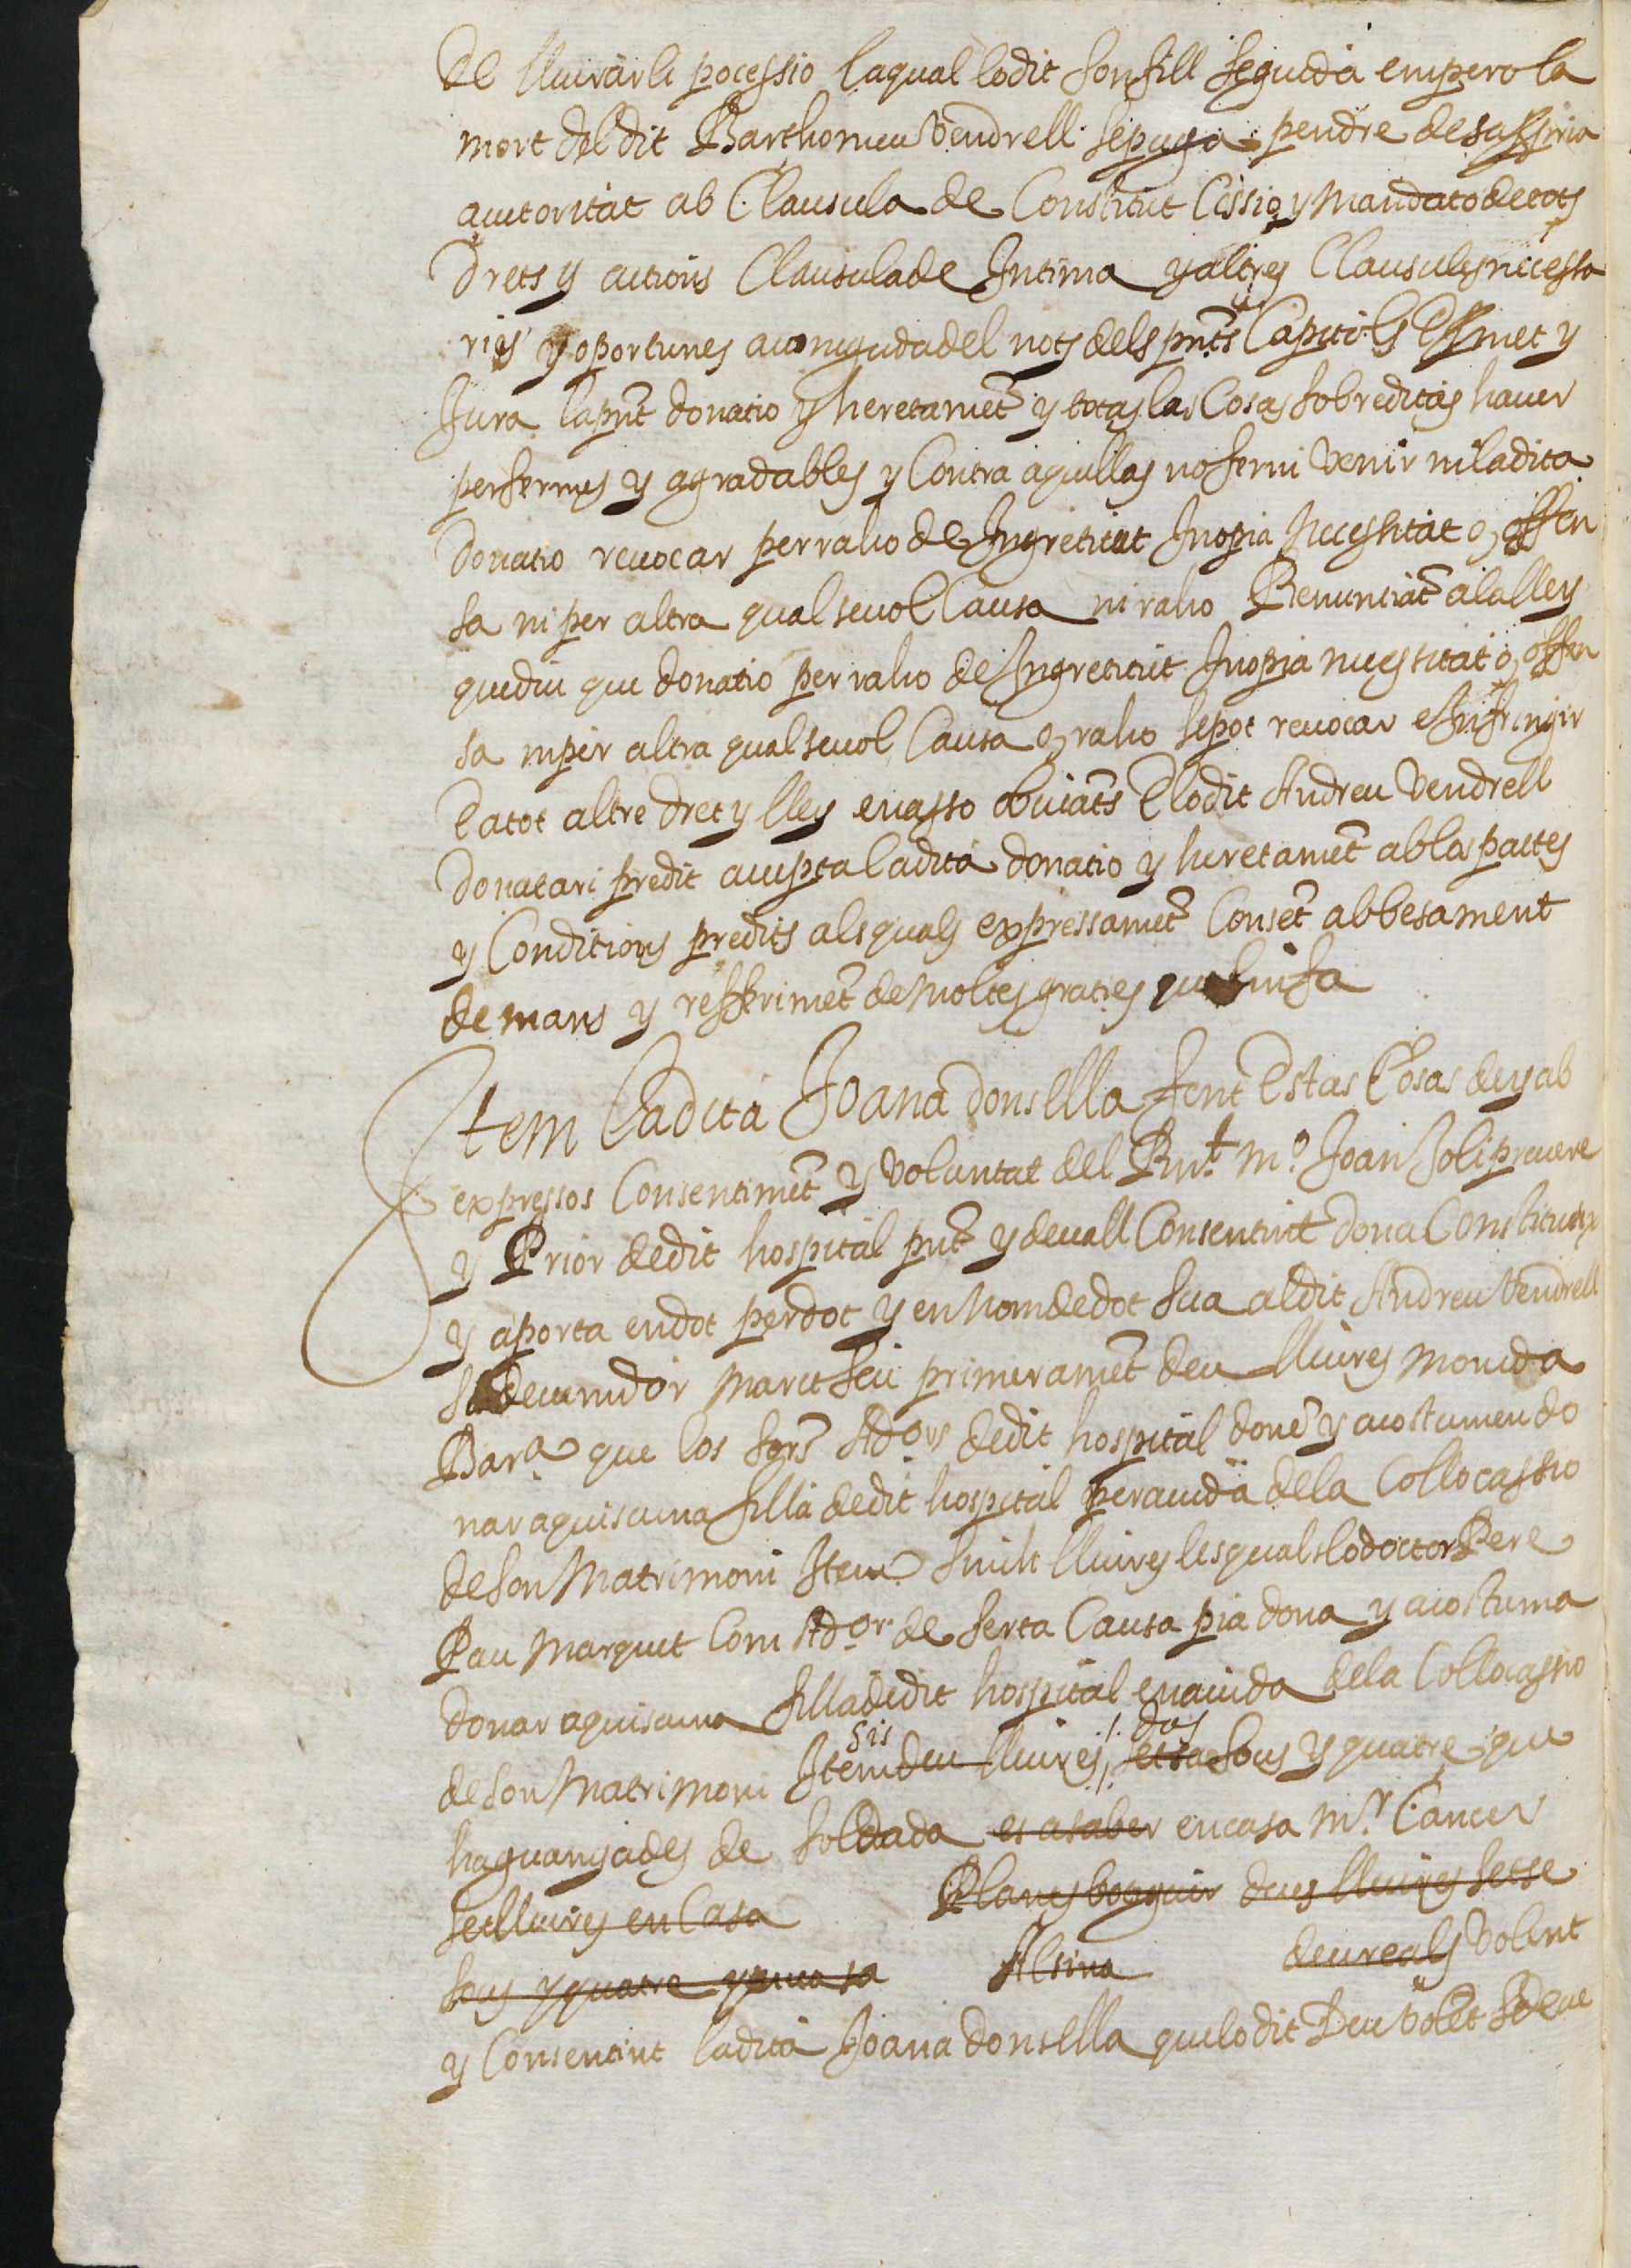 de lliurarli pocessio laqual lodit son fill seguida empero la
mort del dit Barthomeu Vendrell sepuga pendre de sa ppria
auctoritat ab Clausula de Constitut Cessio y Mandato de tots
drets y actions Clausula de Intima y altres Clausules necessa
ries y oportunes a coneguda del nots dels pnts Capitols E pmet y
Jura la pnt donatio y heretamet y totas las Cosas sobreditas hauer
per fermes y agradables y Contra aquellas no fer ni Venir ni ladita
Donatio reuocar per raho de Ingretitut Inopia Necessitat o, offen
sa ni per altra qualseuol Causa ni raho Renunciat a la lley
que diu que donatio per raho de Ingretitut Inopia necessitat o, offen
sa ni per altra qualseuol Causa o, raho se pot reuocar e Infringir
E a tot altre dret y lley en asso obuiats E lodit Andreu Vendrell
Donatari predit accepta ladita donatio y heretamet ab los pactes
y Conditions predits als quals expressamet Conset ab besament
de mans y refferimet de Moltes graties que lin fa
Item Ladita Joana donsella fent Estas Cosas dey ab
expressos Consentimet y Voluntat del Rnt. Mo. Joan Soli preuere
y Prior de dit hospital pnt y deuall Consentint dona Constitueix
y aporta en dot per dot y en nom de dot sua al dit Andreu Vendrell
sdeuenidor marit seu primeramet deu lliures moneda
Bara. que los sors Adors. de dit hospital done y acostumen do
nar a quiscuna filla de dit hospital per aiuda de la Collocassio
de son Matrimoni Item Vuit lliures les quals lo doctor Pere
Pau Marquet Com Ador. de serta Causa pia dona y acostuma
donar a quiscuna filla de dit hospital en aiuda de la Collocassio
sis dos
de son Matrimoni Item deu lliures, setse sous y quatre que
ha guanyades de soldada es a saber en casa Mr. Cancer
set lliures en Casa Planes boquer dues lliures setse
sous y quatre y en casa Alsina deu reals Volent
y Consentint ladita Joana donsella que lo dit Deu Volet sdeue